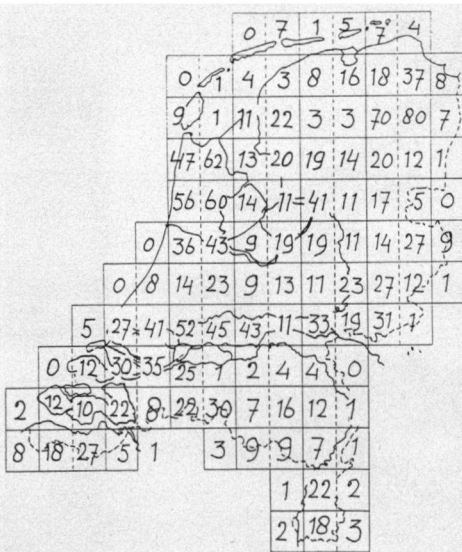 0 7 1 5 7 4
0 1 4 3 8 16 18 37 8
9 1 11 22 3 3 70 80 7
47 62 13 20 19 14 20 12 1
56 60 14 11 41 11 17 5 0
0 36 43 9 19 19 11 14 27 9
0 8 14 23 9 13 11 23 27 12 1
5 27 41 52 45 43 11 33 19 31 1
0 12 30 35 25 1 2 4 4 0
2 12 10 22 8 22 30 7 16 12 1
8 18 27 5 1 3 9 9 7 1
1 22 2
2 18 3